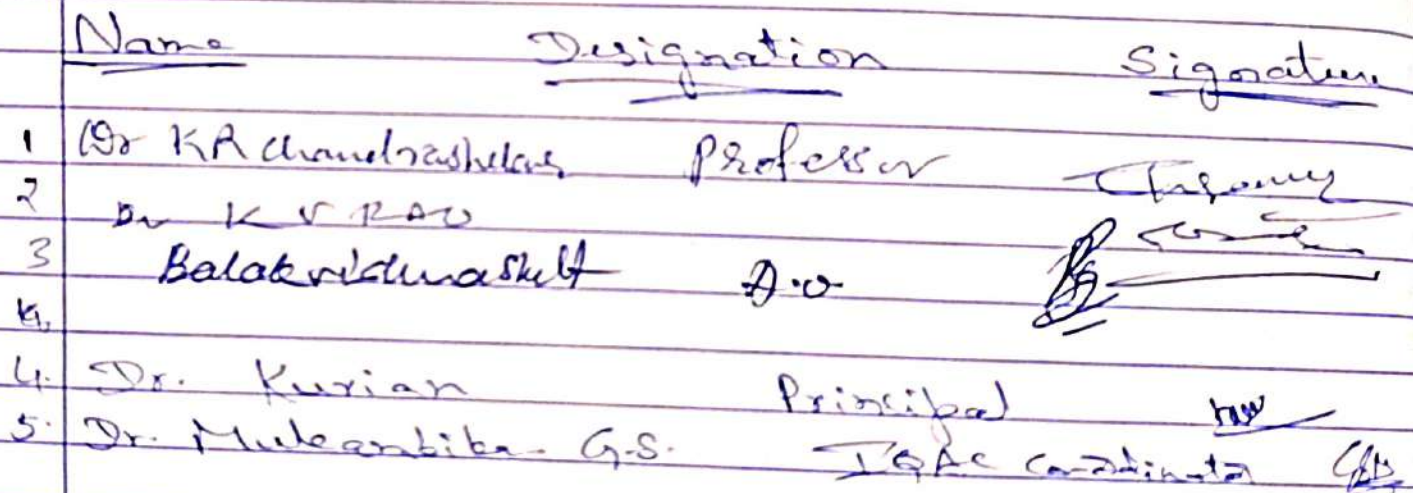 Name Designation Signature
1 Dr KR Chandrashekar Professor
2 Dr K V RAO
3 Balakrishna Shett A.O.
4. Dr. Kurian Principal
5. Dr. Mukambika G.S. IQAC Co-ordinator